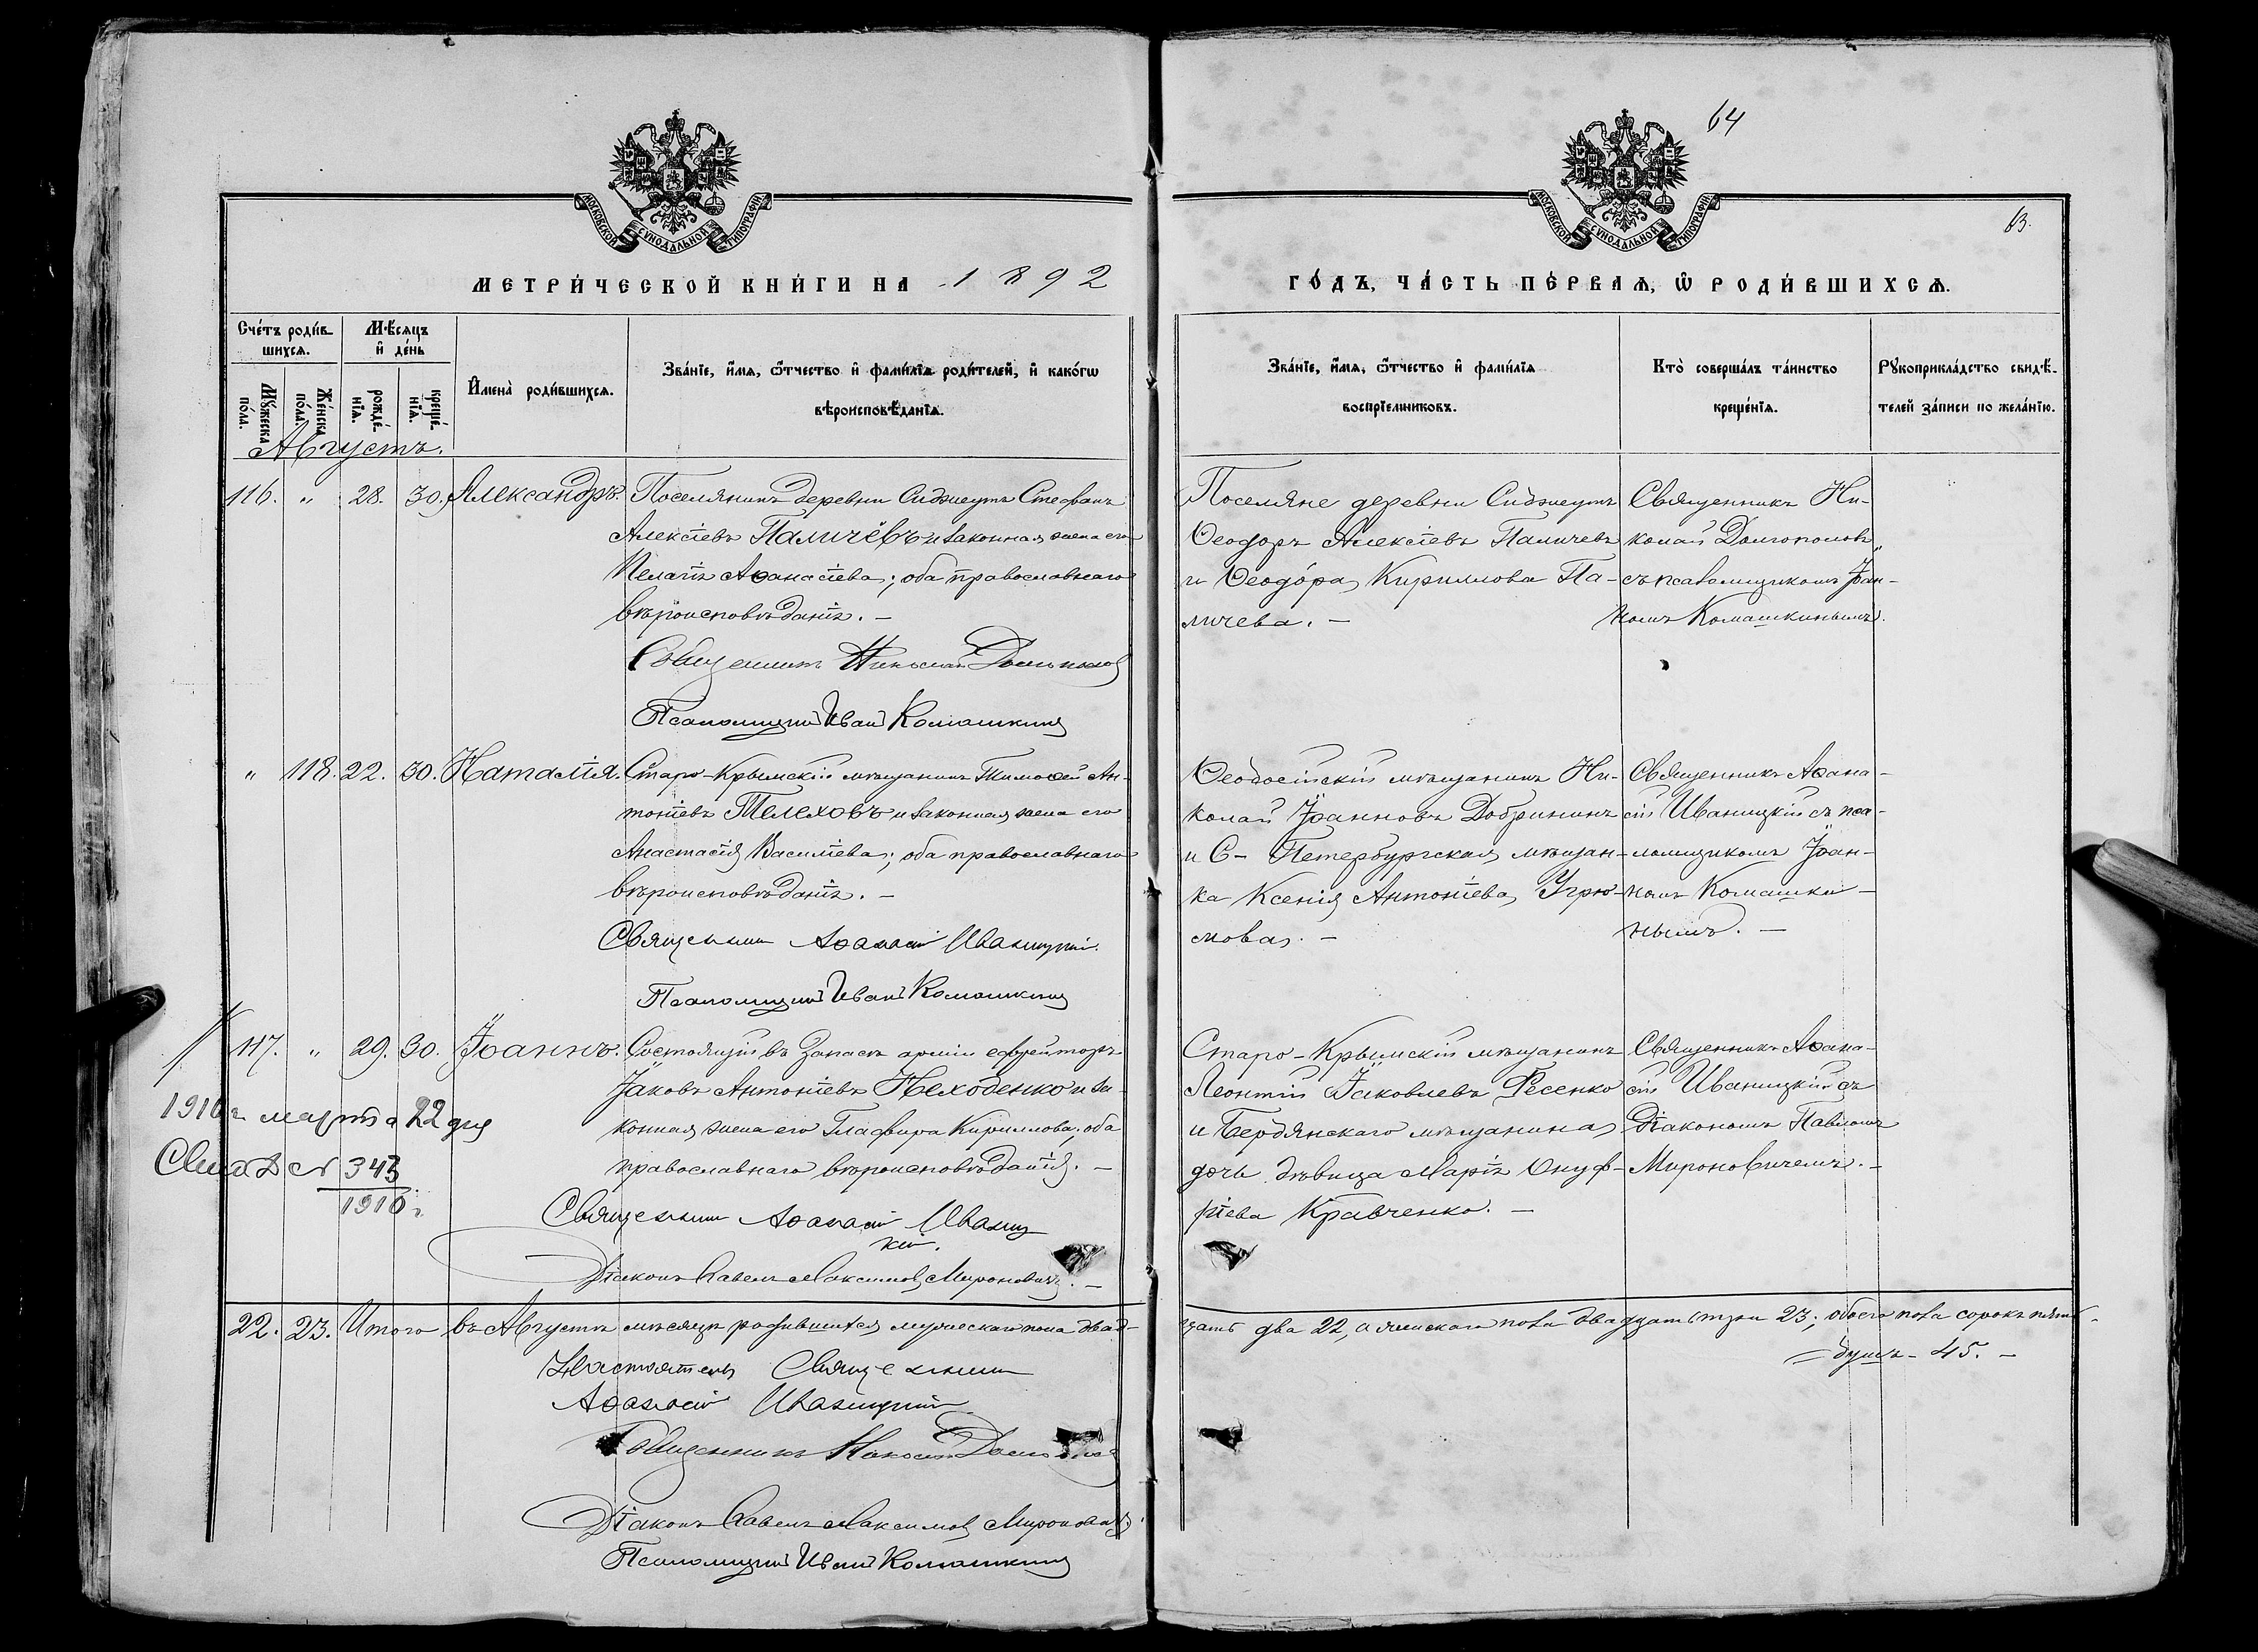 64
63.
МОСКОВСКОЙ СУНОДАЛЬНОЙ ТИПОГРАФІИ
МОСКОВСКОЙ СУНОДАЛЬНОЙ ТИПОГРАФІИ
МЕТРИ́ЧЕСКОЙ КНИ́ГИ НА 1892
ГО́ДЪ, ЧА́СТЬ ПЕ́РВАѦ, Ѡ҆ РОДИ́ВШИХСѦ.
Сче́тъ роди́в-
шихсѧ.
Мѣ́сѧцъ
и҆ де́нь
Мꙋ́жеска
по́ла.
Же́нска
по́ла.
рожде́-
нїѧ.
креще́-
нїѧ.
И҆мена̀ роди́вшихсѧ.
Зва́нїе, и҆́мѧ, ѻ҆́тчество и҆ фами́лїѧ роди́телей, и҆ како́гѡ
вѣроисповѣ́данїѧ.
Зва́нїе, и҆́мѧ, ѻ҆́тчество и҆ фами́лїѧ
воспрїе́мниковъ.
Кто̀ соверша́лъ та́инство
креще́нїѧ.
Рꙋкоприкла́дство свидѣ́-
телей за́писи по жела́нїю.
Августъ.
116. " 28. 30. Александръ. Поселянинъ деревни Сиджеутъ Стефанъ
Алексіевъ Паличёвъ и законная жена его
Пелагія Аѳанасіева; оба православнаго
вѣроисповѣданія. –
Священникъ Николай Долгополов
Псаломщикъ Иванъ Комашкинъ
Поселяне деревни Сиджеутъ
Ѳеодоръ Алексіевъ Паличевъ
и Ѳеодо́ра Кириллова Па-
личева. –
Священникъ Ни-
колай Долгополовъ
съ псаломщикомъ Іоан-
номъ Комашкинымъ.
" 118. 22. 30. Наталія. Старо-Крымскій мѣщанинъ Тимоѳей Ан-
тоніевъ Телеховъ и законная жена его
Анастасія Василіева; оба православнаго
вѣроисповѣданія. –
Священник Аѳанасій Иваницкий.
Псаломщикъ Иванъ Комашкинъ
Ѳеодосійскій мѣщанинъ Ни-
колай Іоанновъ Добрининъ
и С-Петербургская мѣщан-
ка Ксенія Антоніева Угрю-
мова. –
Священникъ Аѳана-
сій Иваницкій съ пса-
ломщикомъ Іоан-
номъ Комашки-
нымъ. –
117. " 29. 30. Іоаннъ. Состоящій въ запасѣ арміи ефрейторъ
Іаковъ Антоніевъ Неходенко и за-
конная жена его Глафира Кириллова, оба
православнаго вѣроисповѣданія. –
Священник Аѳанасій Иваниц
кий.
Діаконъ Павелъ Максимовъ Мироновичъ. –
1910 г марта 22 дня
№ 343
1910 г.
Старо-Крымскій мѣщанинъ
Леонтій Іаковлевъ Фесенко
и Бердянскаго мѣщанина
дочь дѣвица Марія Онуф-
ріева Кравченко. –
Священникъ Аѳана-
сій Иваницкій съ
Діакономъ Павломъ
Мироновичемъ. –
22. 23. Итого въ Августѣ мѣсяцѣ родившихся мужескаго пола двад-
цать два 22, а женскаго пола двадцать три 23; обоего пола сорокъ пять
душъ – 45. –
Настоятель Священник
Аѳанасій Иваницкий
Священникъ Николай Долгополов
Діаконъ Павелъ Максимовъ Мироновичъ
Псаломщикъ Иванъ Комашкинъ